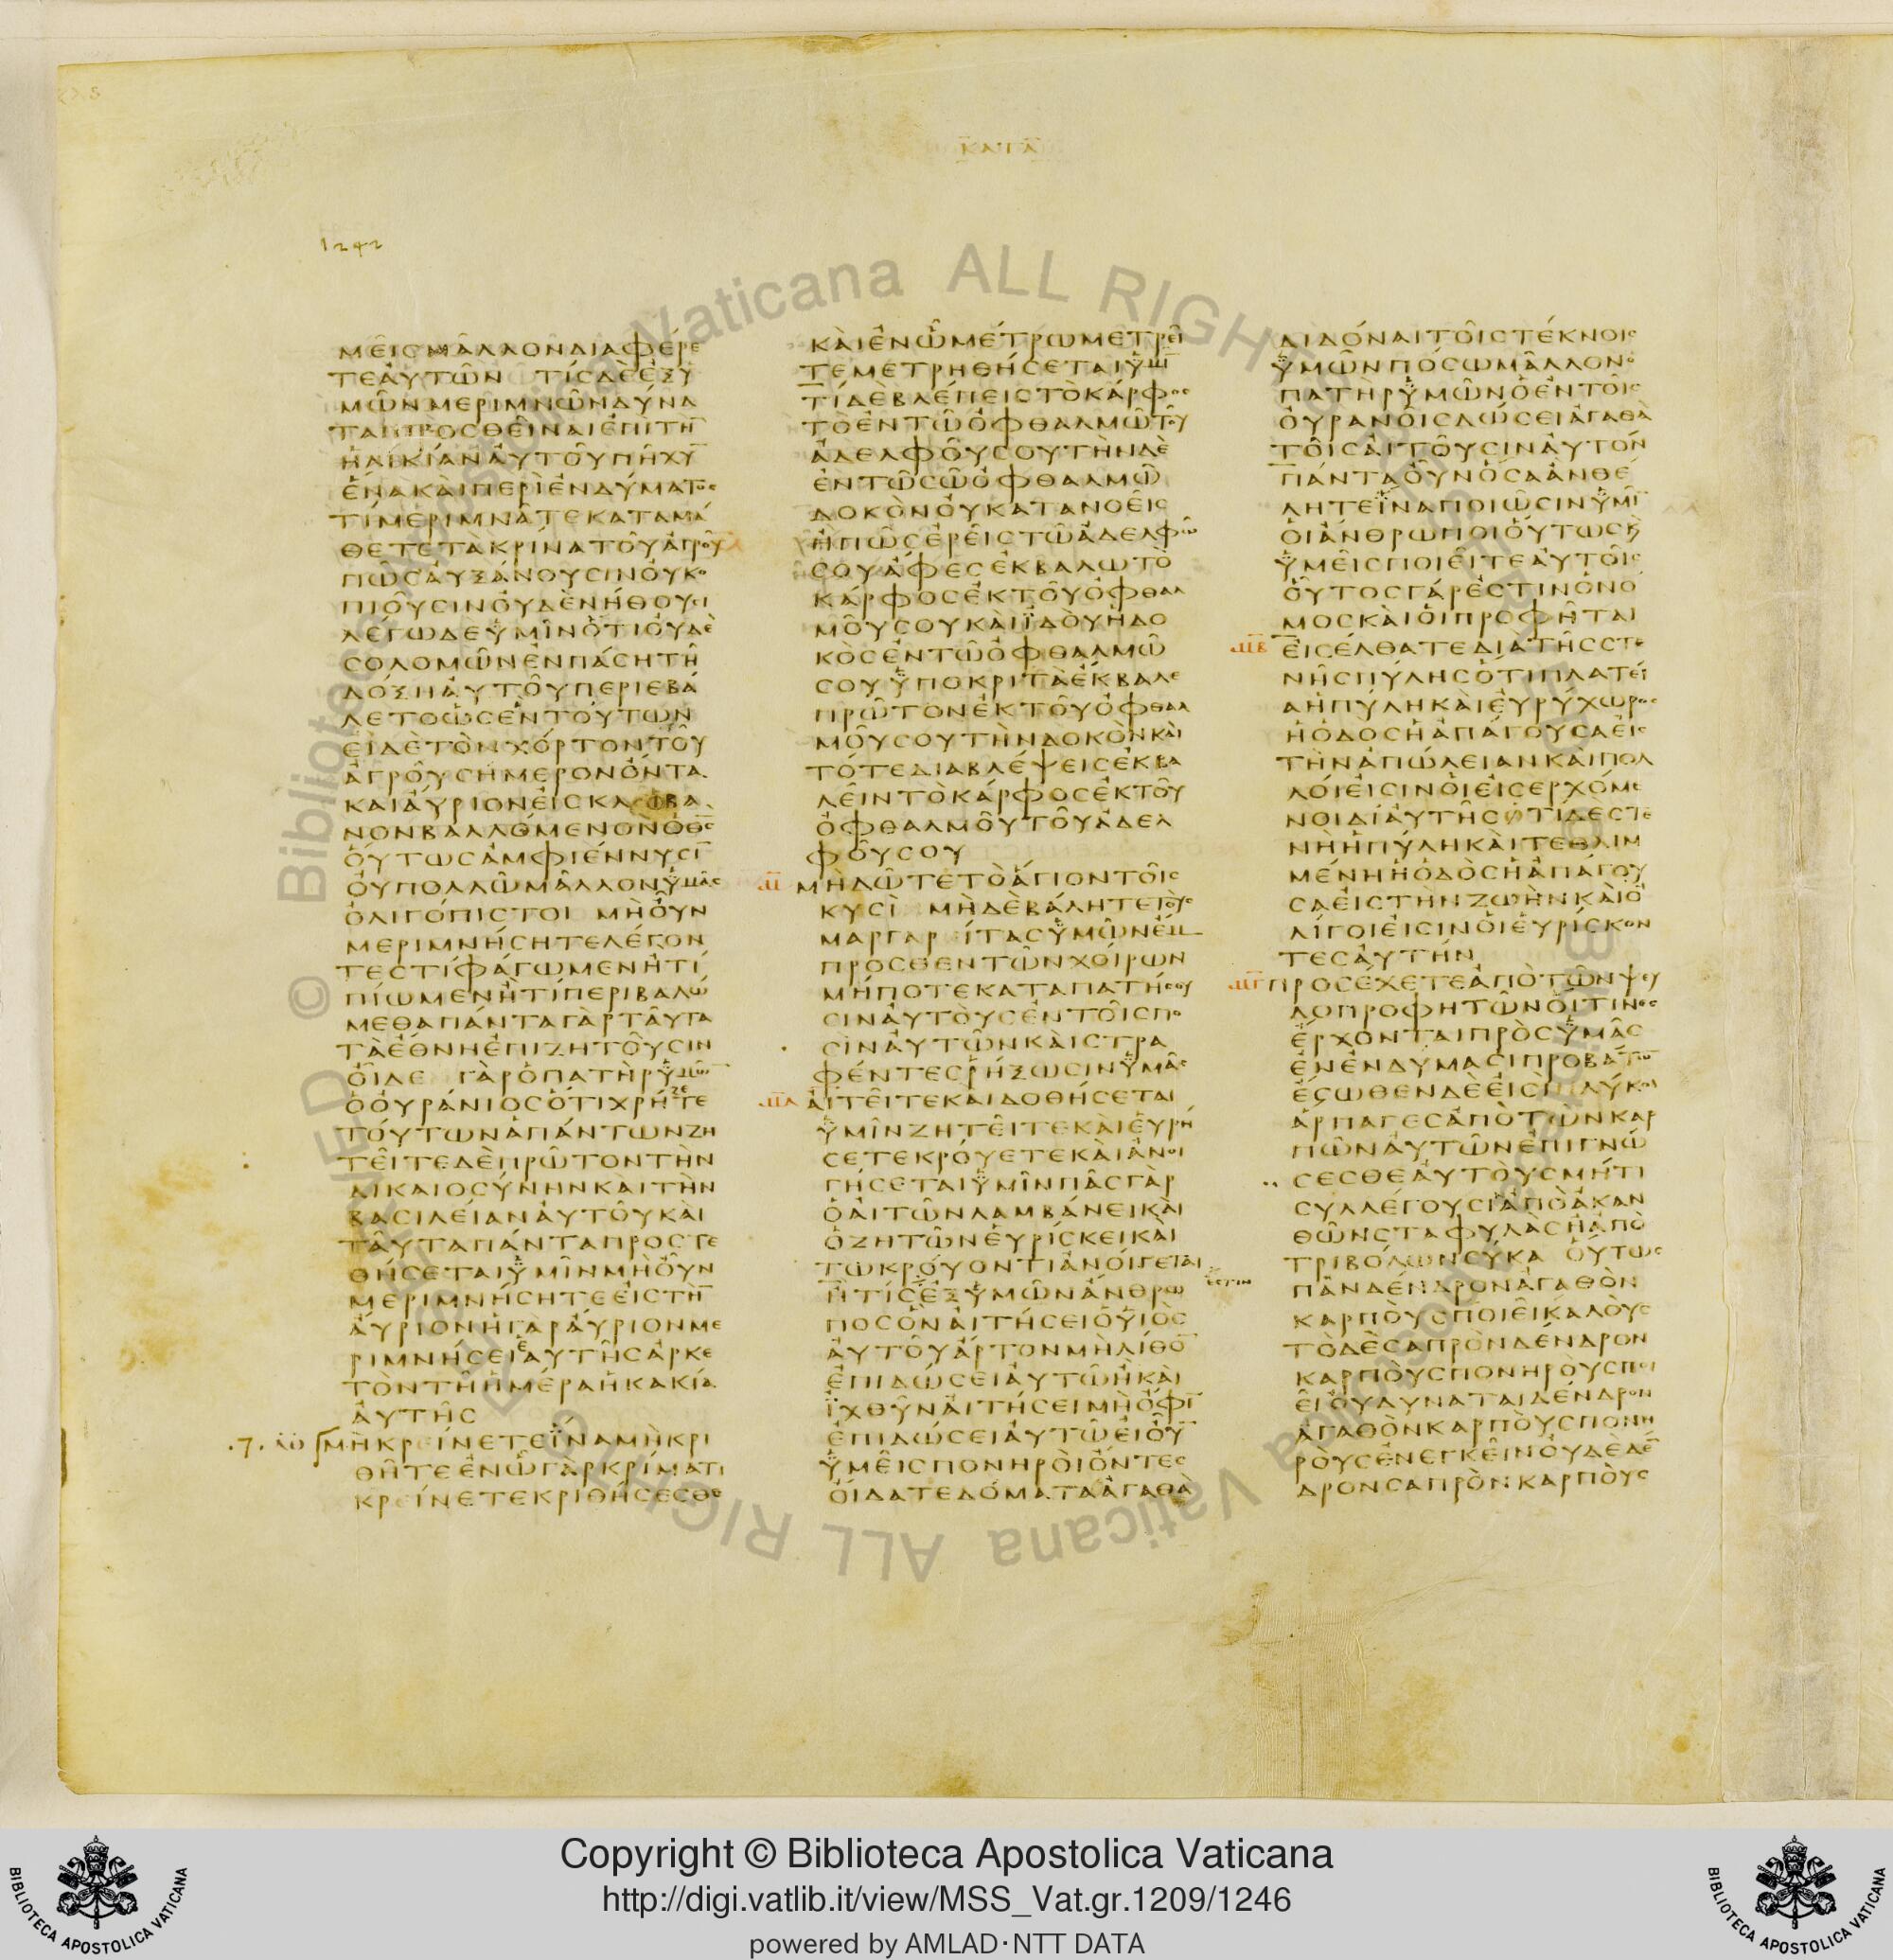 ΚΑΤΑ
1242
ΜΕΙϹΜΑΛΛΟΝΔΙΑΦΕΡΕ
ΤΕΑΥΤΩΝ ΤΙϹΔΕΕΞΥ
ΜΩΝΜΕΡΙΜΝΩΝΔΥΝΑ
ΤΑΙΠΡΟϹΘΕΙΝΑΙΕΠΙΤΗ̅
ΗΛΙΚΙΑΝΑΥΤΟΥΠΗΧΥ̅
ΕΝΑΚΑΙΠΕΡΙΕΝΔΥΜΑΤΟϹ
ΤΙΜΕΡΙΜΝΑΤΕΚΑΤΑΜΑ
ΘΕΤΕΤΑΚΡΙΝΑΤΟΥΑΓΡΟΥ
ΠΩϹΑΥΞΑΝΟΥϹΙΝΟΥΚΟ
ΠΙΟΥϹΙΝΟΥΔΕΝΗΘΟΥϹΙ
ΛΕΓΩΔΕΫΜΙΝΟΤΙΟΥΔΕ
ϹΟΛΟΜΩΝΕΝΠΑϹΗΤΗ
ΔΟΞΗΑΥΤΟΥΠΕΡΙΕΒΑ
ΛΕΤΟΩϹΕΝΤΟΥΤΩΝ
ΕΙΔΕΤΟΝΧΟΡΤΟΝΤΟΥ
ΑΓΡΟΥϹΗΜΕΡΟΝΟΝΤΑ
ΚΑΙΑΥΡΙΟΝΕΙϹΚΛΕΙΒΑ
ΝΟΝΒΑΛΛΟΜΕΝΟΝΟΘ̅Ϲ̅
ΟΥΤΩϹΑΜΦΙΕΝΝΥϹΙ̅
ΟΥΠΟΛΛΩΜΑΛΛΟΝΫΜΑϹ
ΟΛΙΓΟΠΙϹΤΟΙ ΜΗΟΥΝ
ΜΕΡΙΜΝΗϹΗΤΕΛΕΓΟΝ
ΤΕϹΤΙΦΑΓΩΜΕΝΗΤΙ
ΠΙΩΜΕΝΗΤΙΠΕΡΙΒΑΛΩ
ΜΕΘΑΠΑΝΤΑΓΑΡΤΑΥΤΑ
ΤΑΕΘΝΗΕΠΙΖΗΤΟΥϹΙΝ
ΟΙΔΕ ΓΑΡΟΠΑΤΗΡΫΜΩ̅
ΟΟΥΡΑΝΙΟϹΟΤΙΧΡΗΖΕΤΕ
ΤΟΥΤΩΝΑΠΑΝΤΩΝΖΗ
ΤΕΙΤΕΔΕΠΡΩΤΟΝΤΗΝ
ΔΙΚΑΙΟϹΥΝΗΝΚΑΙΤΗΝ
ΒΑϹΙΛΕΙΑΝΑΥΤΟΥΚΑΙ
ΤΑΥΤΑΠΑΝΤΑΠΡΟϹΤΕ
ΘΗϹΕΤΑΙΫΜΙΝΜΗΟΥΝ
ΜΕΡΙΜΝΗϹΗΤΕΕΙϹΤΗ̅
ΑΥΡΙΟΝΗΓΑΡΑΥΡΙΟΝΜΕ
ΡΙΜΝΗϹΕΙΕΑΥΤΗϹΑΡΚΕ
ΤΟΝΤΗΗΜΕΡΑΗΚΑΚΙΑ
ΑΥΤΗϹ
ΜΗΚΡΕΙΝΕΤΕΪΝΑΜΗΚΡΙ
ΘΗΤΕΕΝΩΓΑΡΚΡΙΜΑΤΙ
ΚΡΕΙΝΕΤΕΚΡΙΘΗϹΕϹΘΕ
ΚΑΙΕΝΩΜΕΤΡΩΜΕΤΡΕΙ
ΤΕΜΕΤΡΗΘΗϹΕΤΑΙΫΜΙ̅
ΤΙΔΕΒΛΕΠΕΙϹΤΟΚΑΡΦΟϹ
ΤΟΕΝΤΩΟΦΘΑΛΜΩΤΟΥ
ΑΔΕΛΦΟΥϹΟΥΤΗΝΔΕ
ΕΝΤΩϹΩΟΦΘΑΛΜΩ
ΔΟΚΟΝΟΥΚΑΤΑΝΟΕΙϹ
ΗΠΩϹΕΡΕΙϹΤΩΑΔΕΛΦΩ
ϹΟΥΑΦΕϹΕΚΒΑΛΩΤΟ
ΚΑΡΦΟϹΕΚΤΟΥΟΦΘΑΛ
ΜΟΥϹΟΥΚΑΙΪΔΟΥΗΔΟ
ΚΟϹΕΝΤΩΟΦΘΑΛΜΩ
ϹΟΥΫΠΟΚΡΙΤΑΕΚΒΑΛΕ
ΠΡΩΤΟΝΕΚΤΟΥΟΦΘΑΛ
ΜΟΥϹΟΥΤΗΝΔΟΚΟΝΚΑΙ
ΤΟΤΕΔΙΑΒΛΕΨΕΙϹΕΚΒΑ
ΛΕΙΝΤΟΚΑΡΦΟϹΕΚΤΟΥ
ΟΦΘΑΛΜΟΥΤΟΥΑΔΕΛ
ΦΟΥϹΟΥ
ΜΗΔΩΤΕΤΟΑΓΙΟΝΤΟΙϹ
ΚΥϹΙ ΜΗΔΕΒΑΛΗΤΕΤΟΥϹ
ΜΑΡΓΑΡΕΙΤΑϹΫΜΩΝΕΜ
ΠΡΟϹΘΕΝΤΩΝΧΟΙΡΩΝ
ΜΗΠΟΤΕΚΑΤΑΠΑΤΗϹΟΥ
ϹΙΝΑΥΤΟΥϹΕΝΤΟΙϹΠΟ
ϹΙΝΑΥΤΩΝΚΑΙϹΤΡΑ
ΦΕΝΤΕϹΡΗΞΩϹΙΝΫΜΑϹ
ΑΙΤΕΙΤΕΚΑΙΔΟΘΗϹΕΤΑΙ
ΫΜΙΝΖΗΤΕΙΤΕΚΑΙΕΥΡΗ
ϹΕΤΕΚΡΟΥΕΤΕΚΑΙΑΝΟΙ
ΓΗϹΕΤΑΙΫΜΙΝΠΑϹΓΑΡ
ΟΑΙΤΩΝΛΑΜΒΑΝΕΙΚΑΙ
ΟΖΗΤΩΝΕΥΡΙϹΚΕΙΚΑΙ
ΤΩΚΡΟΥΟΝΤΙΑΝΟΙΓΕΤΑΙ
ΗΤΙϹΕΞΫΜΩΝΑΝΘΡΩ
ΠΟϹΟΝΑΙΤΗϹΕΙΟΫΙΟϹ
ΑΥΤΟΥΑΡΤΟΝΜΗΛΙΘΟ̅
ΕΠΙΔΩϹΕΙΑΥΤΩΗΚΑΙ
ΪΧΘΥΝΑΙΤΗϹΕΙΜΗΟΦΙ̅
ΕΠΙΔΩϹΕΙΑΥΤΩΕΙΟΥ̅
ΫΜΕΙϹΠΟΝΗΡΟΙΟΝΤΕϹ
ΟΙΔΑΤΕΔΟΜΑΤΑΑΓΑΘΑ
ΔΙΔΟΝΑΙΤΟΙϹΤΕΚΝΟΙϹ
ΫΜΩΝΠΟϹΩΜΑΛΛΟΝΟ
ΠΑΤΗΡΫΜΩΝΟΕΝΤΟΙϹ
ΟΥΡΑΝΟΙϹΔΩϹΕΙΑΓΑΘΑ
ΤΟΙϹΑΙΤΟΥϹΙΝΑΥΤΟΝ
ΠΑΝΤΑΟΥΝΟϹΑΑΝΘΕ
ΛΗΤΕΪΝΑΠΟΙΩϹΙΝΫΜΙ̅
ΟΙΑΝΘΡΩΠΟΙΟΥΤΩϹΚ
ΫΜΕΙϹΠΟΙΕΙΤΕΑΥΤΟΙϹ
ΟΥΤΟϹΓΑΡΕϹΤΙΝΟΝΟ
ΜΟϹΚΑΙΟΙΠΡΟΦΗΤΑΙ
ΕΙϹΕΛΘΑΤΕΔΙΑΤΗϹϹΤΕ
ΝΗϹΠΥΛΗϹΟΤΙΠΛΑΤΕΙ
ΑΗΠΥΛΗΚΑΙΕΥΡΥΧΩΡΟϹ
ΗΟΔΟϹΗΑΠΑΓΟΥϹΑΕΙϹ
ΤΗΝΑΠΩΛΕΙΑΝΚΑΙΠΟΛ
ΛΟΙΕΙϹΙΝΟΙΕΙϹΕΡΧΟΜΕ
ΝΟΙΔΙΑΥΤΗϹΟΤΙΔΕϹΤΕ
ΝΗΗΠΥΛΗΚΑΙΤΕΘΛΙΜ
ΜΕΝΗΗΟΔΟϹΗΑΠΑΓΟΥ
ϹΑΕΙϹΤΗΝΖΩΗΝΚΑΙΟ
ΛΙΓΟΙΕΙϹΙΝΟΙΕΥΡΙϹΚΟΝ
ΤΕϹΑΥΤΗΝ
ΠΡΟϹΕΧΕΤΕΑΠΟΤΩΝΨΕΥ
ΔΟΠΡΟΦΗΤΩΝΟΙΤΙΝΕϹ
ΕΡΧΟΝΤΑΙΠΡΟϹΫΜΑϹ
ΕΝΕΝΔΥΜΑϹΙΠΡΟΒΑΤΩ̅
ΕϹΩΘΕΝΔΕΕΙϹΙ ΛΥΚΟΙ
ΑΡΠΑΓΕϹΑΠΟΤΩΝΚΑΡ
ΠΩΝΑΥΤΩΝΕΠΙΓΝΩ
ϹΕϹΘΕΑΥΤΟΥϹΜΗΤΙ
ϹΥΛΛΕΓΟΥϹΙΑΠΟΑΚΑΝ
ΘΩΝϹΤΑΦΥΛΑϹΗΑΠΟ
ΤΡΙΒΟΛΩΝϹΥΚΑ ΟΥΤΩϹ
ΠΑΝΔΕΝΔΡΟΝΑΓΑΘΟΝ
ΚΑΡΠΟΥϹΠΟΙΕΙΚΑΛΟΥϹ
ΤΟΔΕϹΑΠΡΟΝΔΕΝΔΡΟΝ
ΚΑΡΠΟΥϹΠΟΝΗΡΟΥϹΠΟΙ
ΕΙΟΥΔΥΝΑΤΑΙΔΕΝΔΡΟΝ
ΑΓΑΘΟΝΚΑΡΠΟΥϹΠΟΝΗ
ΡΟΥϹΕΝΕΓΚΕΙΝΟΥΔΕΔΕ̅
ΔΡΟΝϹΑΠΡΟΝΚΑΡΠΟΥϹ
© Biblioteca Apostolica Vaticana ALL RIGHTS RESERVED
Copyright © Biblioteca Apostolica Vaticana
http://digi.vatlib.it/view/MSS_Vat.gr.1209/1246
powered by AMLAD·NTT DATA
BIBLIOTECA APOSTOLICA VATICANA
BIBLIOTECA APOSTOLICA VATICANA